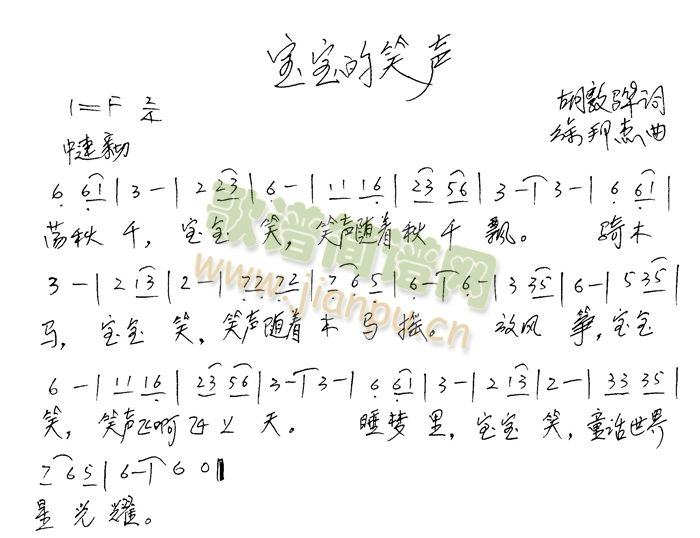 宝宝的笑声
1=F 2/4
胡敦骅词
中速
徐邦杰曲
6 61 | 3 - | 2 23 | 6 - | 11 16 | 23 56 | 3 - | 3 - | 6 61 |
荡秋千，宝宝笑，笑声随着秋千飘。骑木
3 - | 2 13 | 2 - | 72 72 | 7 6 5 | 6 - | 6 - | 3 35 | 6 - | 5 35 |
马，宝宝笑，笑声随着木马摇。放风筝，宝宝
6 - | 11 16 | 23 56 | 3 - | 3 - | 6 61 | 3 - | 2 13 | 2 - | 33 35 |
笑，笑声飞啊飞上天。睡梦里，宝宝笑，童话世界
7 6 5 | 6 - | 6 0 |
星光耀。
歌谱简谱网
www.jianpu.cn